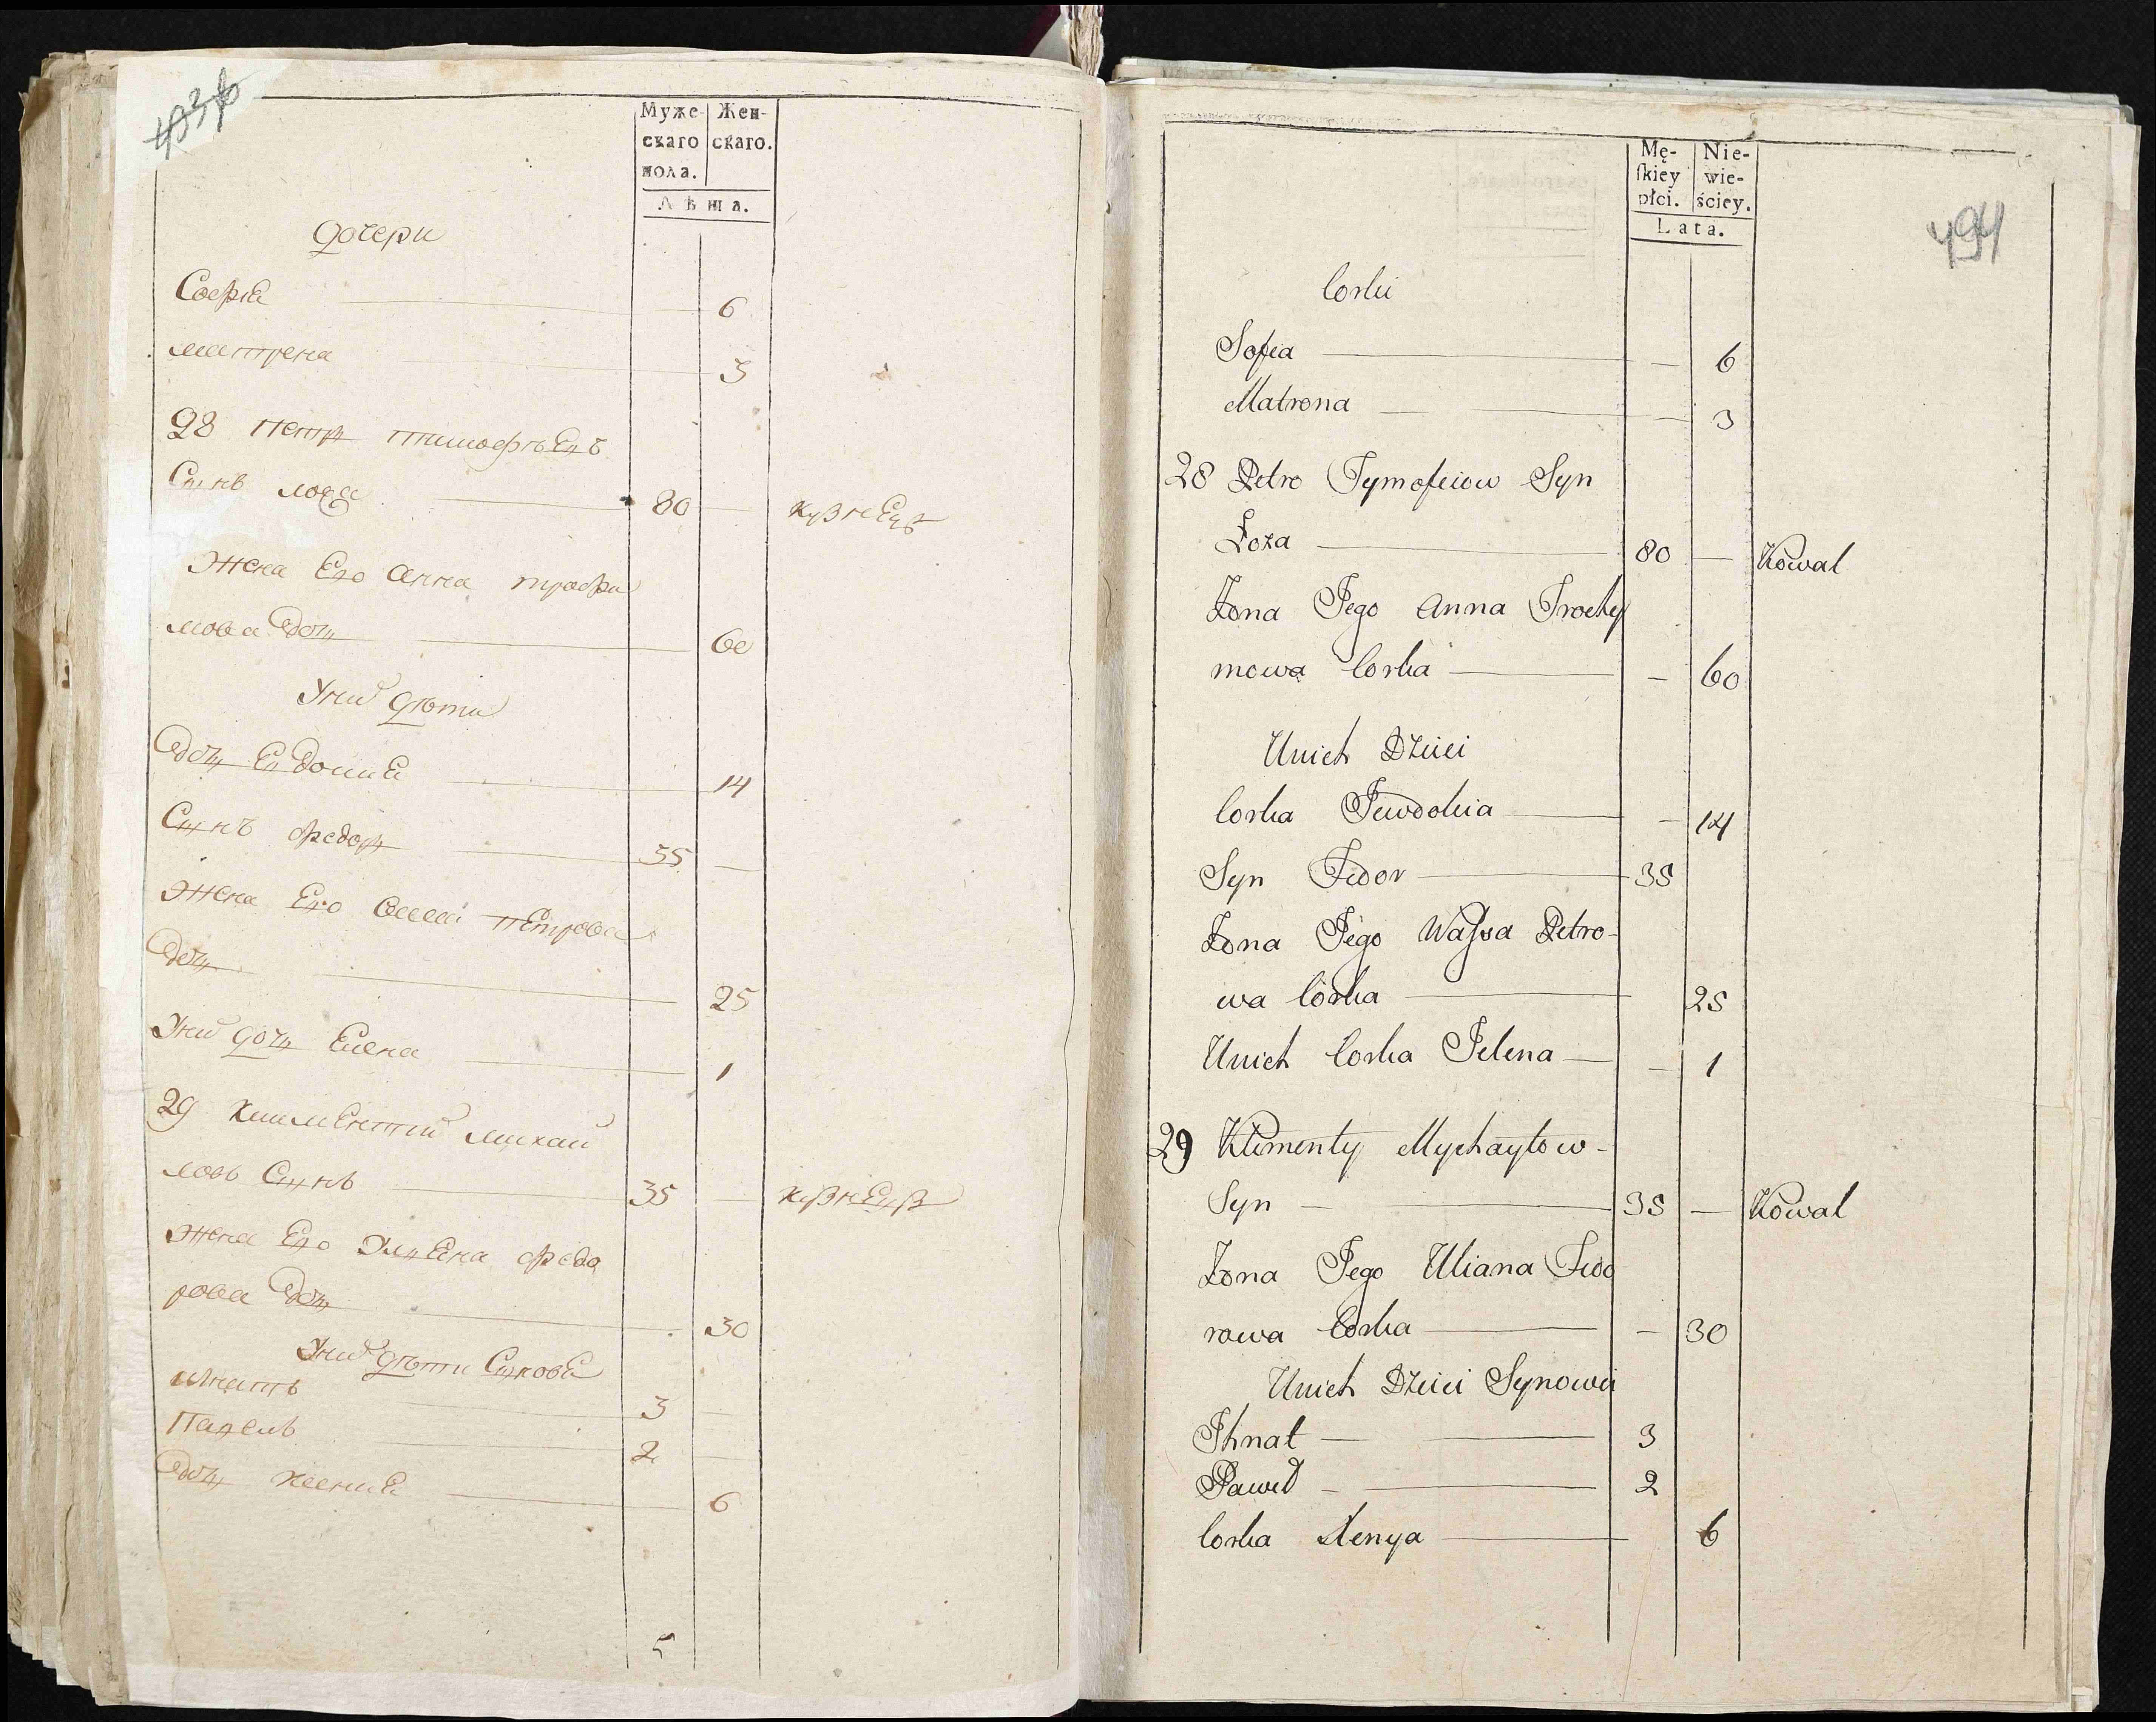 Муже-
скаго
пола.
Жен-
скаго.
Лѣта.
дочери
Софиа 6
матрена 3
28 Петръ тимофѣевъ
Сынъ лоза 80 кузнецъ
Жена Его анна трофи
мова дочь 60
Унихъ дѣти
дочь Евдокиа 14
Сынъ федоръ 35
Жена Его петрова
дочь 25
Унихъ дочь Елена 1
29 климентий михай
ловъ Сынъ 35 кузнецъ
жена Его улиена федо
рова дочь 30
Унихъ дѣти Сыновья
игнатъ 3
Павелъ 2
дочь ксения 6
5
Mę-
ſkiey
płci.
Nie-
wie-
ściey.
Lata.
494
Corki
Sofia — 6
Matrona — 3
28 Petro Tymofeiow Syn
Łoza 80 — Kowal
Zona Jego Anna Trochy
mowa Corka — 60
Unich Dzieci
Corka Jewdokia — 14
Syn Fedor 35
Zona Jego Wassa Petro-
wa Corka 25
Unich Corka Jelena — 1
29 Klimenty Mychayłow-
Syn 35 — Kowal
Zona Jego Uliana Fedo
rowa Corka — 30
Unich Dzieci Synowei
Ihnat 3
Paweł 2
Corka Xenya 6